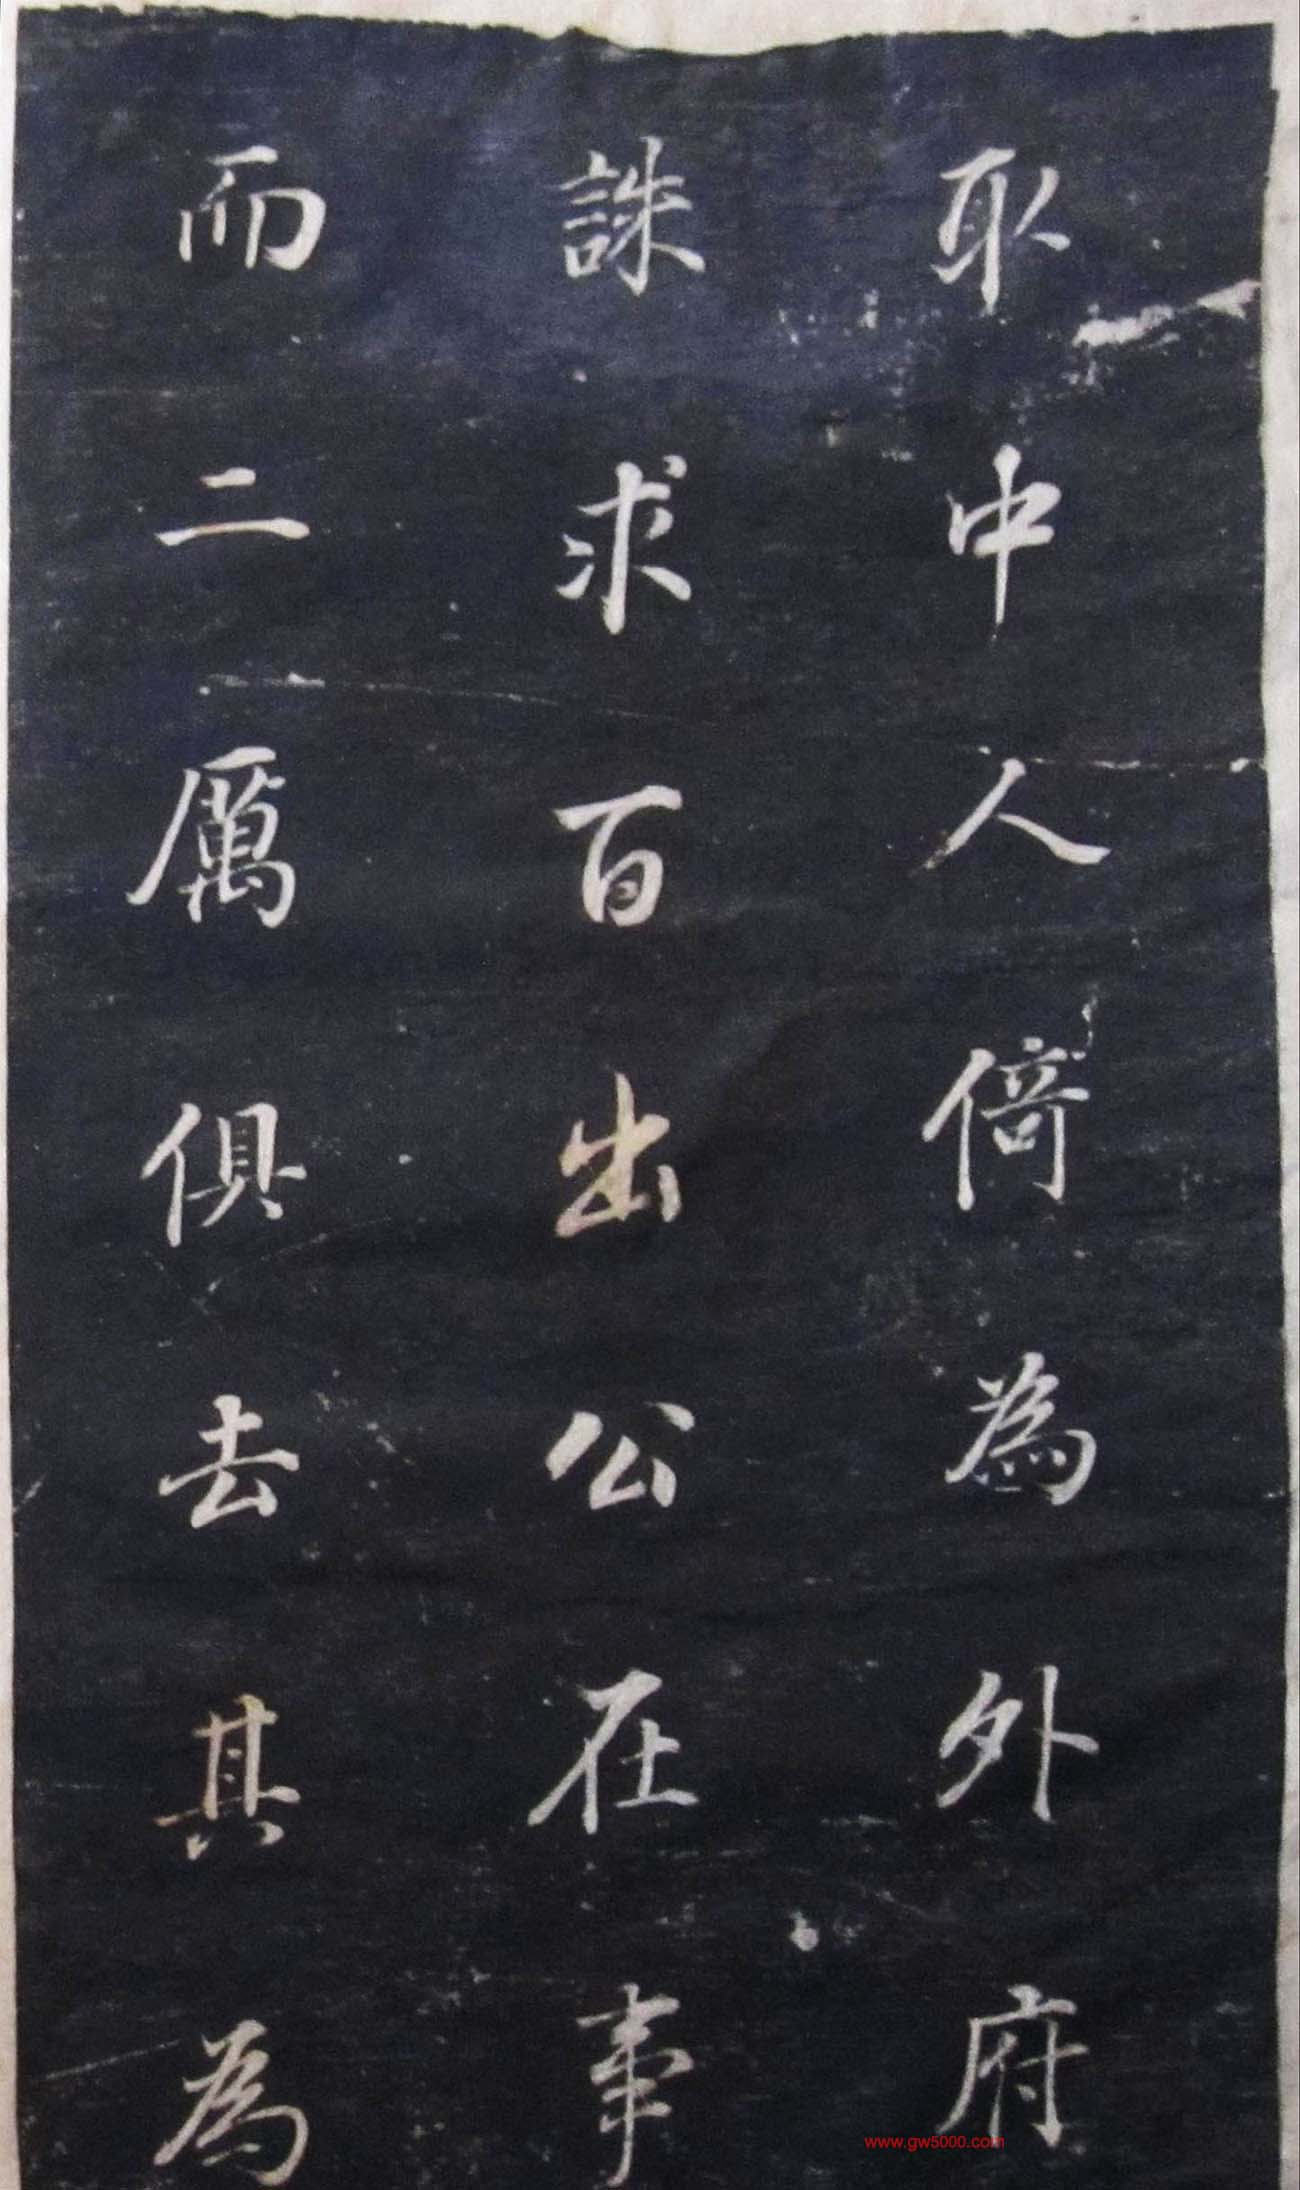 取中人倚為外府
誅求百出公在事
而二厲俱去其為
www.gw5000.com